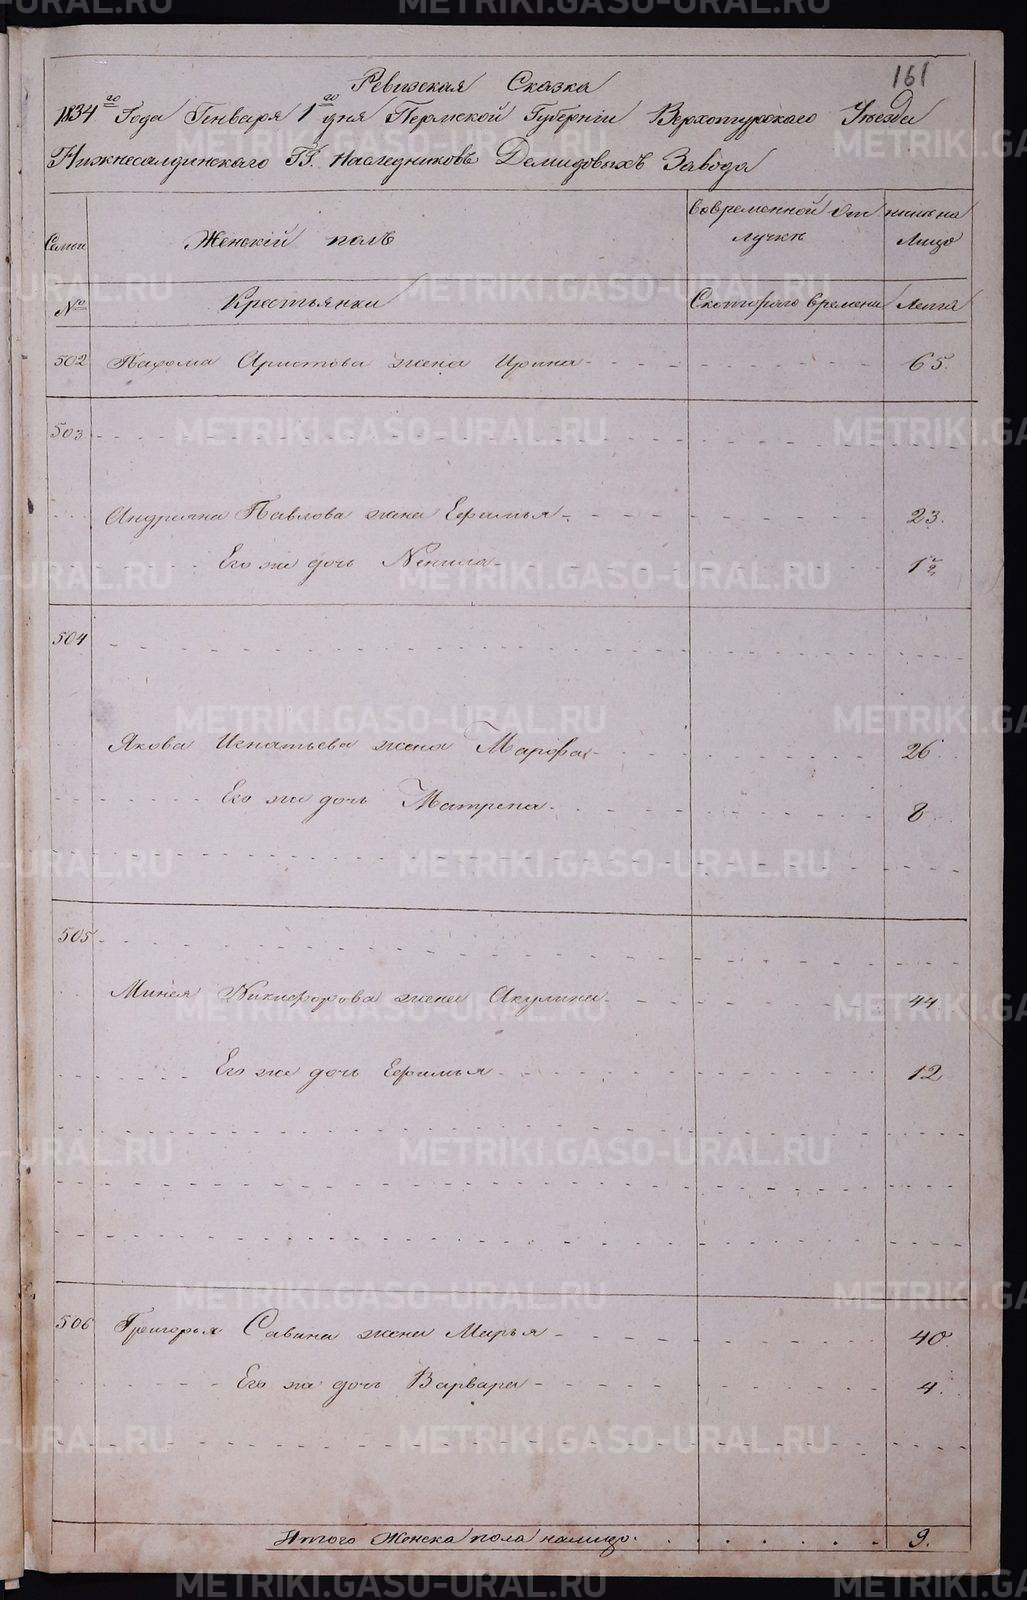 161
Ревизская Сказка
1834го Года Генваря 1го дня Пермской Губернiи Верхотурскаго Уезда
Нижнесалдинскаго ГГ. Наследниковъ Демидовыхъ Завода
Семьи
Женскiй полъ
во временной от
лучке
ныне на
Лицо
№
Крестьянки
С котораго времени
Лета
502 Пахома Аристова жена Ирина 65.
503
Андреяна Павлова жена Ефимья 23.
Его же дочь Ненила 1½
504
Якова Игнатьева жена Марфа 26.
Его же дочь Матрена 8
505
Минея Никифорова жена Акулина 44
Его же дочь Ефимья 12
506 Григорья Савина жена Марья 40
Его же дочь Варвара 4.
Итого Женска пола налицо 9.
METRIKI.GASO-URAL.RU